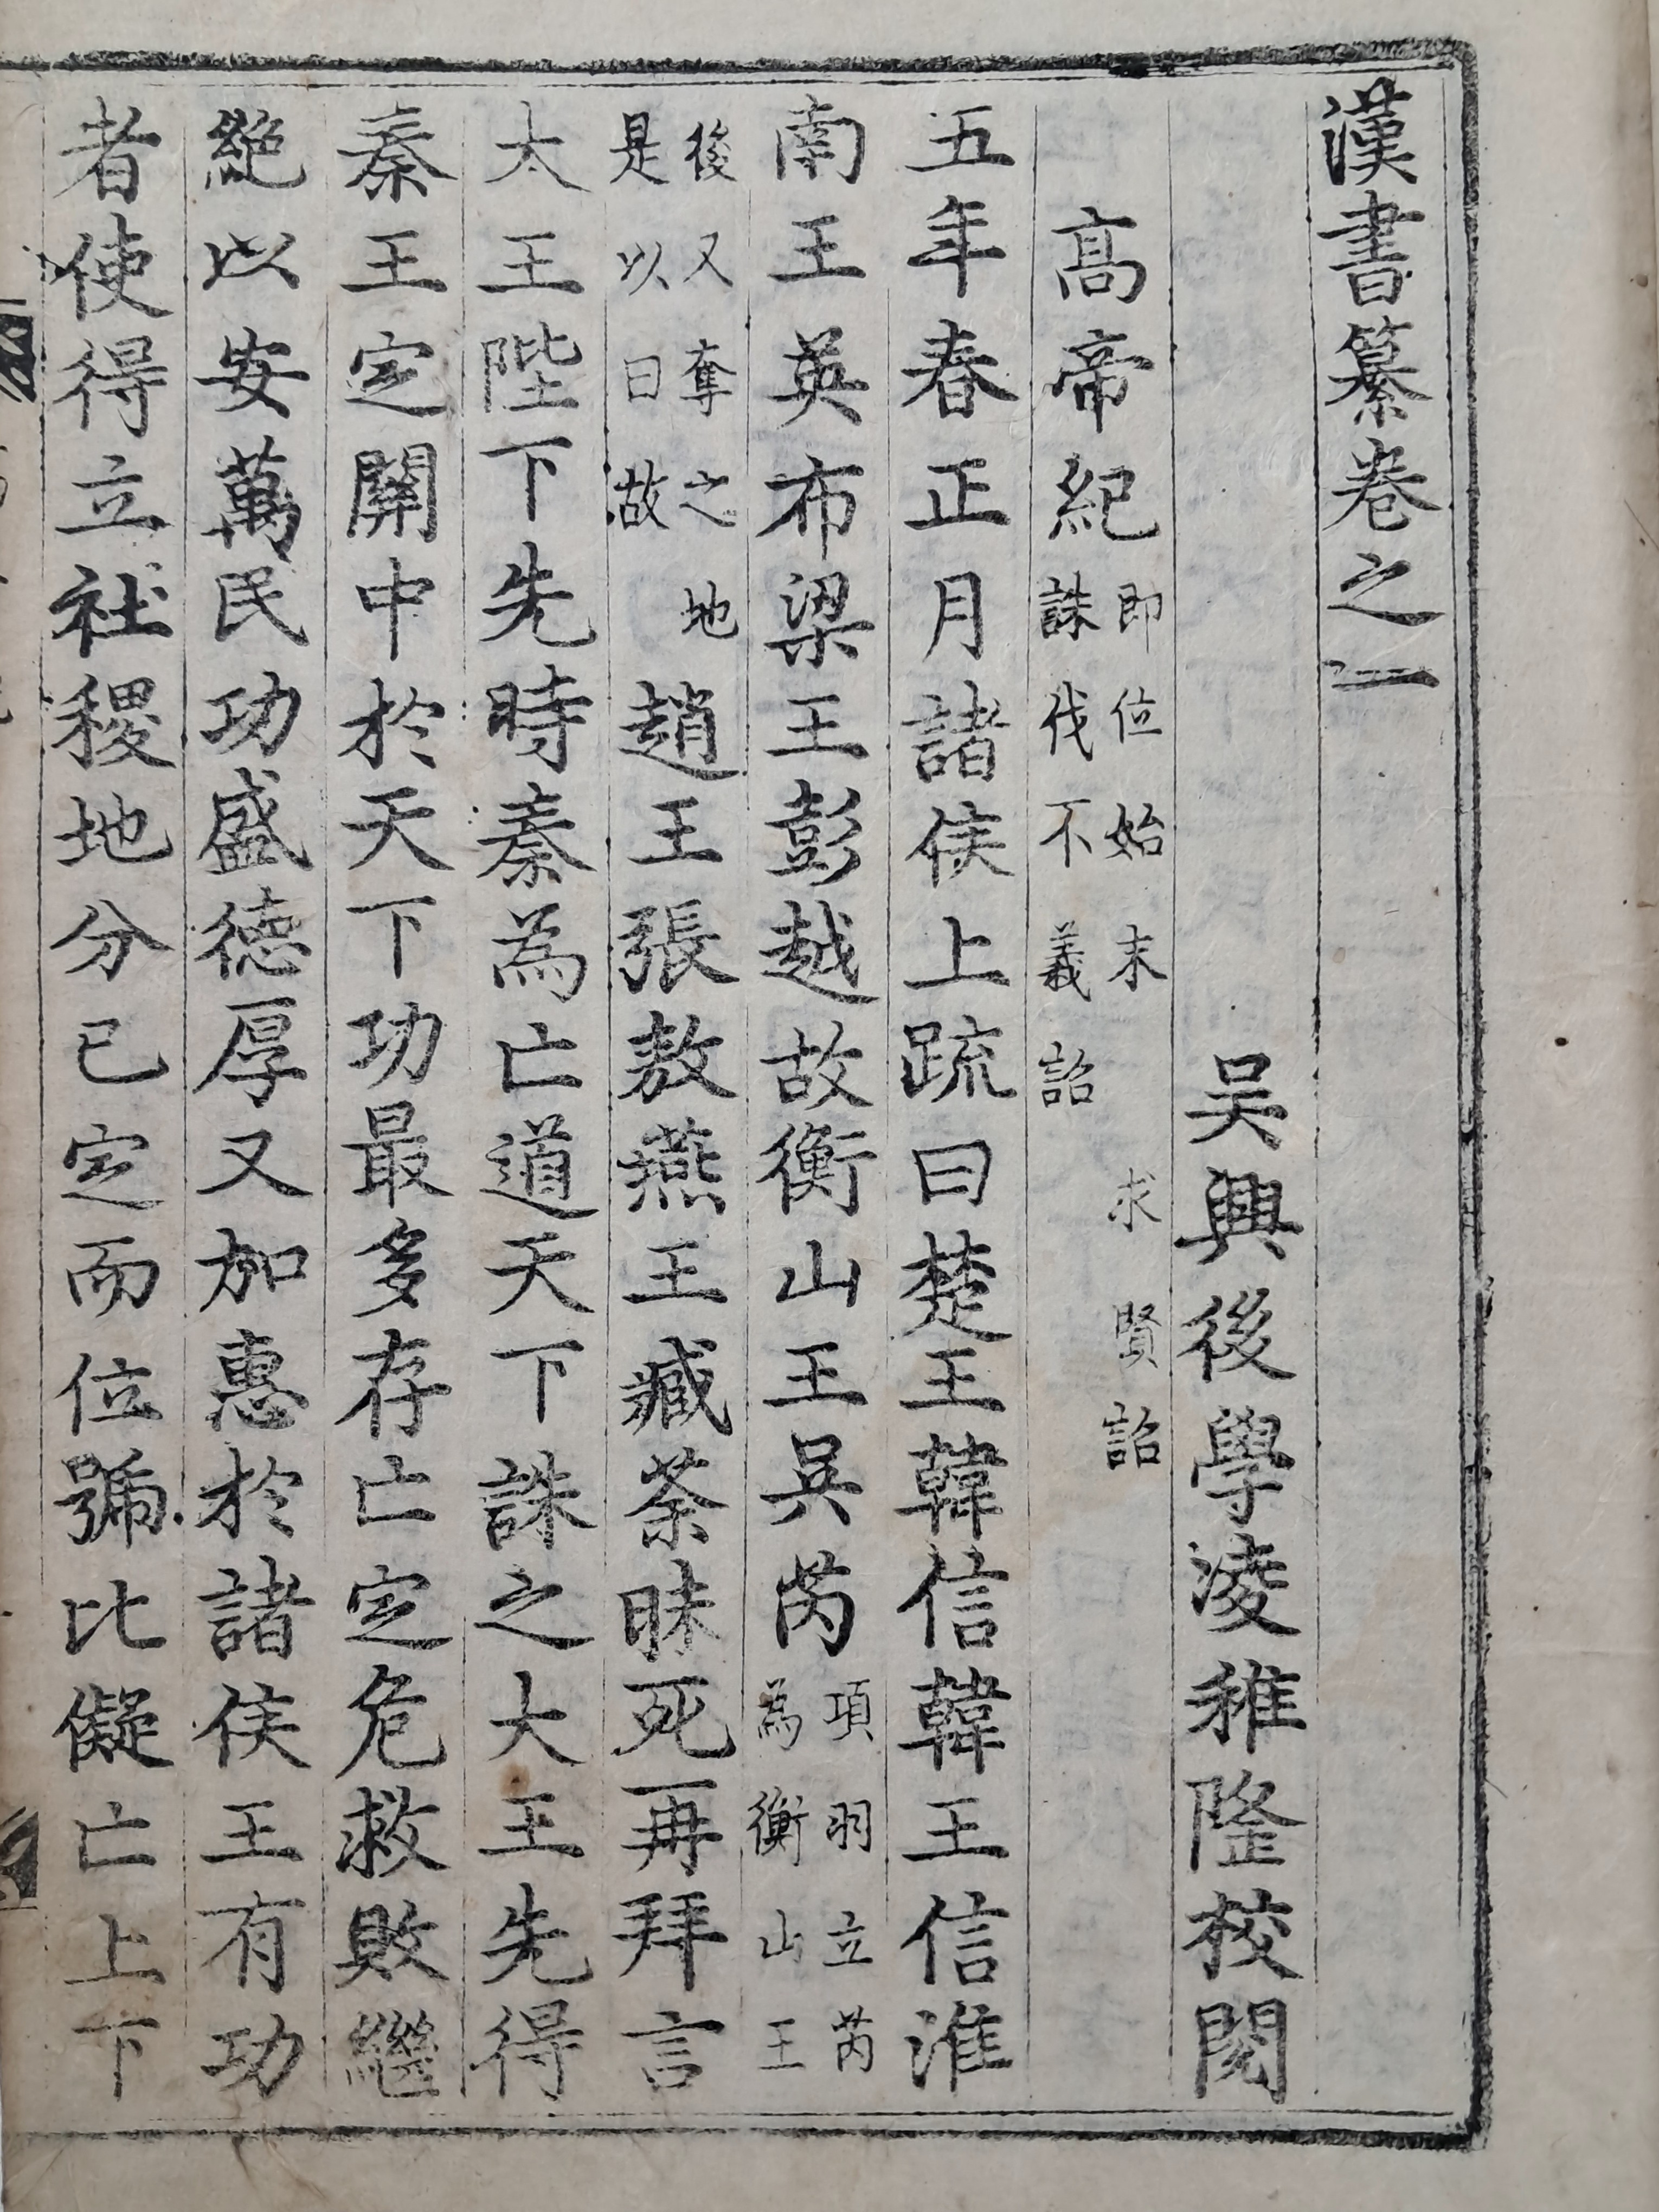 漢書纂卷之一
吴興後學淩稚隆校閱
高帝紀即位始末 求賢詔誅伐不義詔
五年春正月諸侯上疏曰楚王韓信韓王信淮
南王英布梁王彭越故衡山王吴芮項羽立芮為衡山王
後又奪之地是以曰故趙王張敖燕王臧荼昧死再拜言
大王陛下先時秦為亡道天下誅之大王先得
秦王定關中於天下功最多存亡定危救敗繼
絕以安萬民功盛德厚又加惠於諸侯王有功
者使得立社稷地分已定而位號比儗亡上下